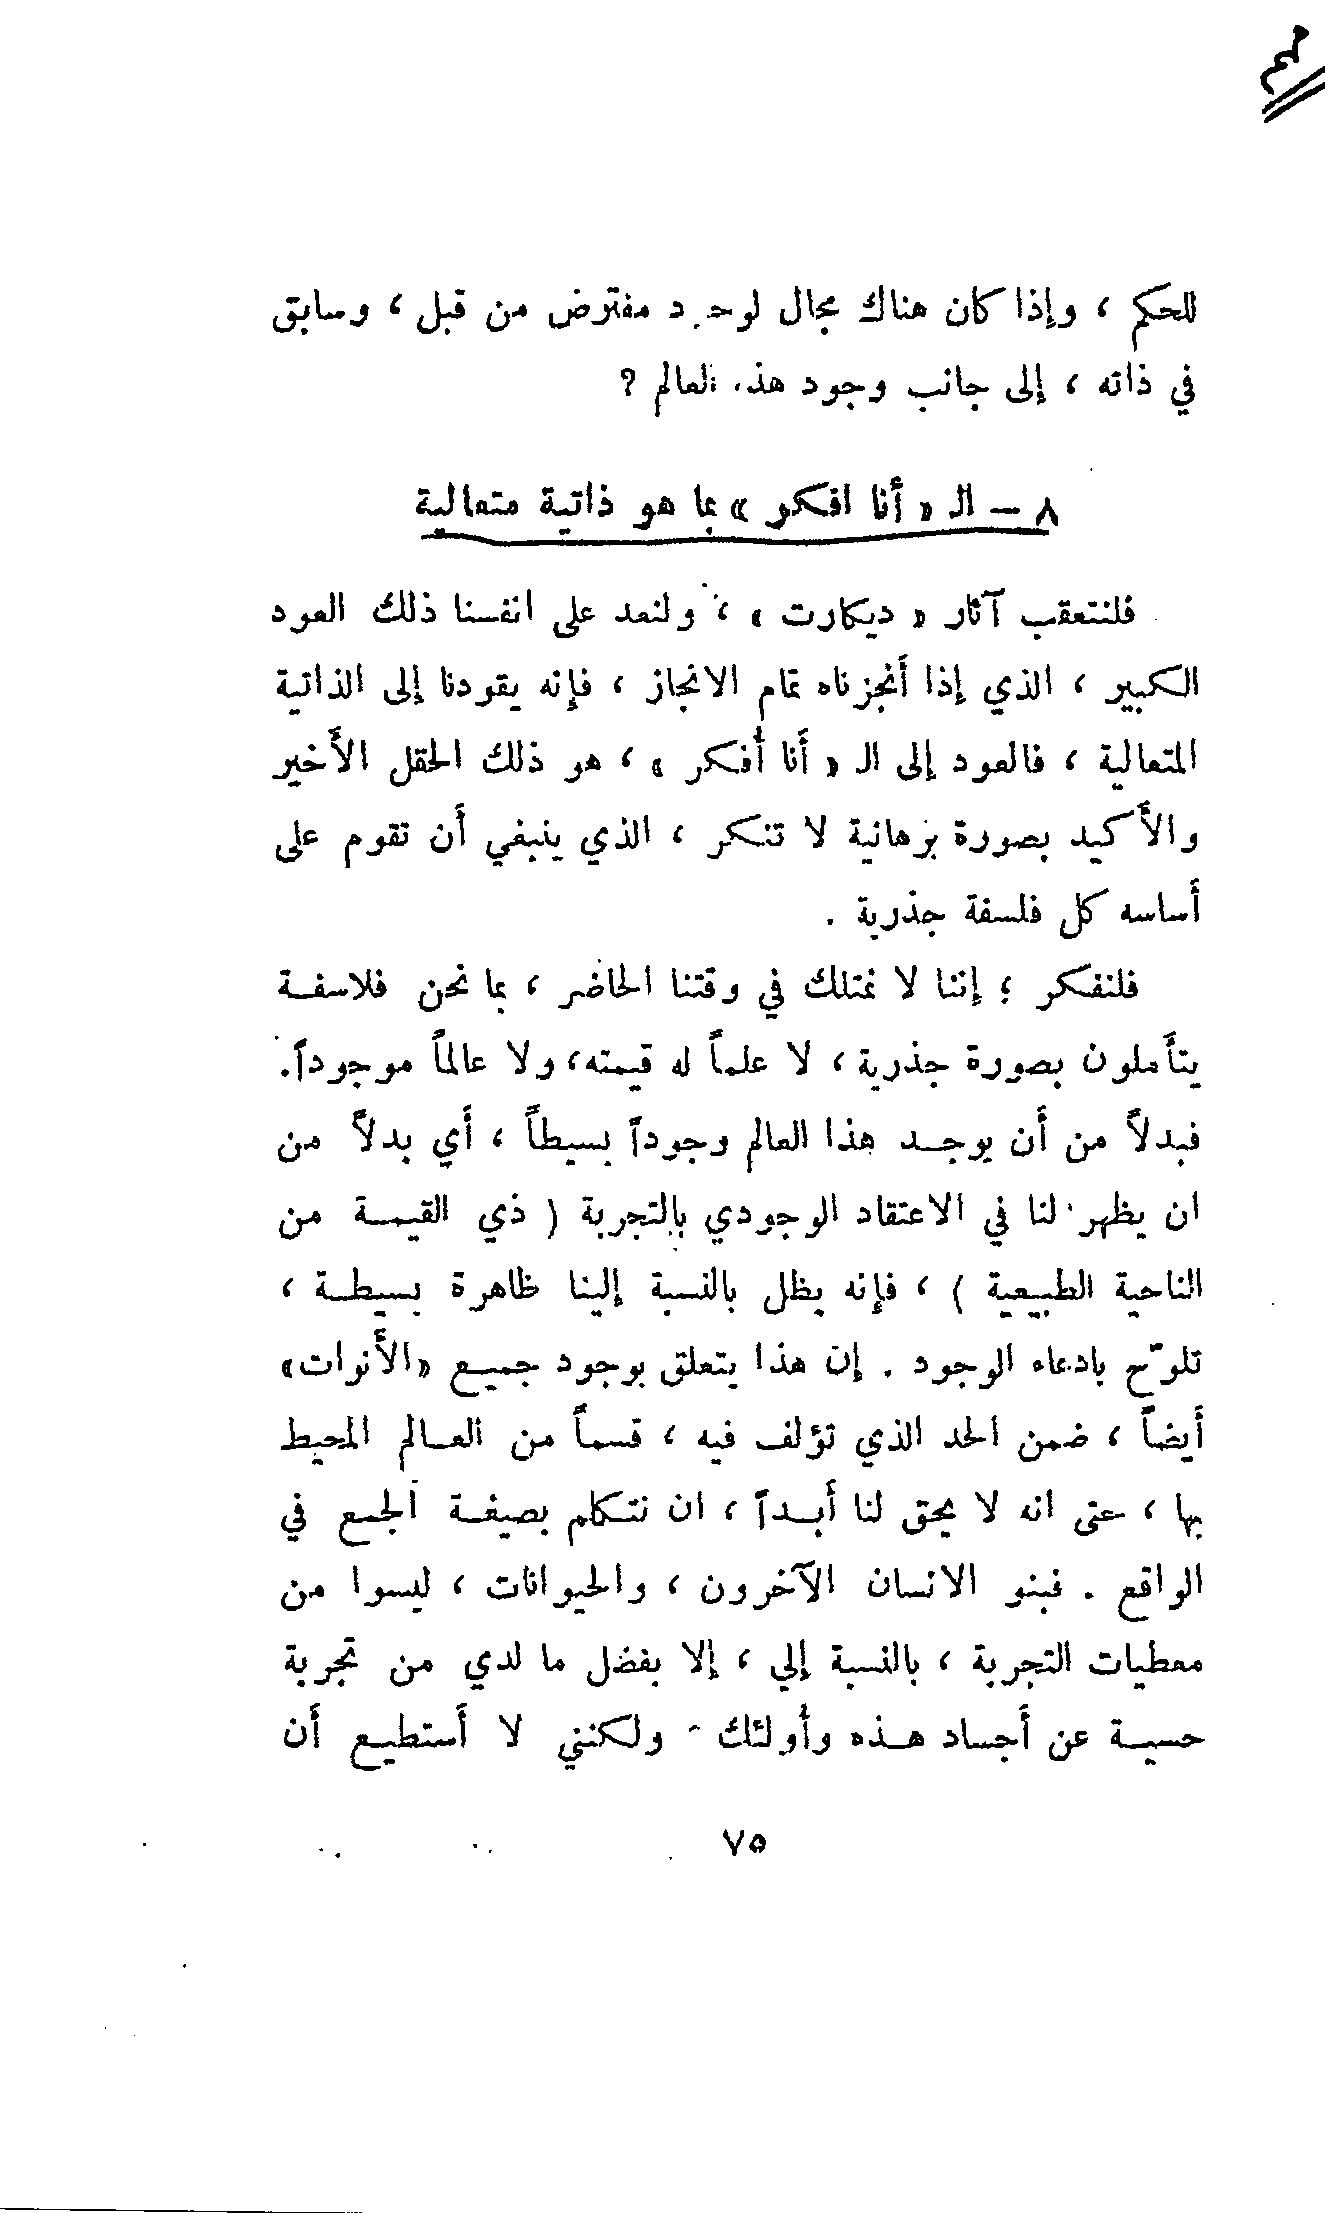 مهم
للحكم ، وإذا كان هناك مجال لوجود مفترض من قبل ، وسابق
في ذاته ، إلى جانب وجود هذا العالم ?
٨ – الـ « أنا افكر » بما هو ذاتية متعالية
فلنتعقب آثار « ديكارت » ، ولنعد على انفسنا ذلك العود
الكبير ، الذي إذا أنجزناه تمام الانجاز ، فإنه يقودنا إلى الذاتية
المتعالية ، فالعود إلى الـ « أنا أفكر » ، هو ذلك الحقل الأخير
والأكيد بصورة برهانية لا تنكر ، الذي ينبغي أن تقوم على
أساسه كل فلسفة جذرية .
فلنفكر ؛ إننا لا نمتلك في وقتنا الحاضر ، بما نحن فلاسفة
يتأملون بصورة جذرية ، لا علماً له قيمته، ولا عالماً موجوداً.
فبدلاً من أن يوجد هذا العالم وجوداً بسيطاً ، أي بدلاً من
ان يظهر لنا في الاعتقاد الوجودي بالتجربة ( ذي القيمة من
الناحية الطبيعية ) ، فإنه يظل بالنسبة إلينا ظاهرة بسيطة ،
تلوّح بادعاء الوجود . إن هذا يتعلق بوجود جميع «الأنوات»
أيضاً ، ضمن الحد الذي تؤلف فيه ، قسماً من العالم المحيط
بها ، حتى انه لا يحق لنا أبداً ، ان نتكلم بصيغة الجمع في
الواقع . فبنو الانسان الآخرون ، والحيوانات ، ليسوا من
معطيات التجربة ، بالنسبة إلي ، إلا بفضل ما لدي من تجربة
حسية عن أجساد هذه وأولئك - ولكنني لا أستطيع أن
٧٥